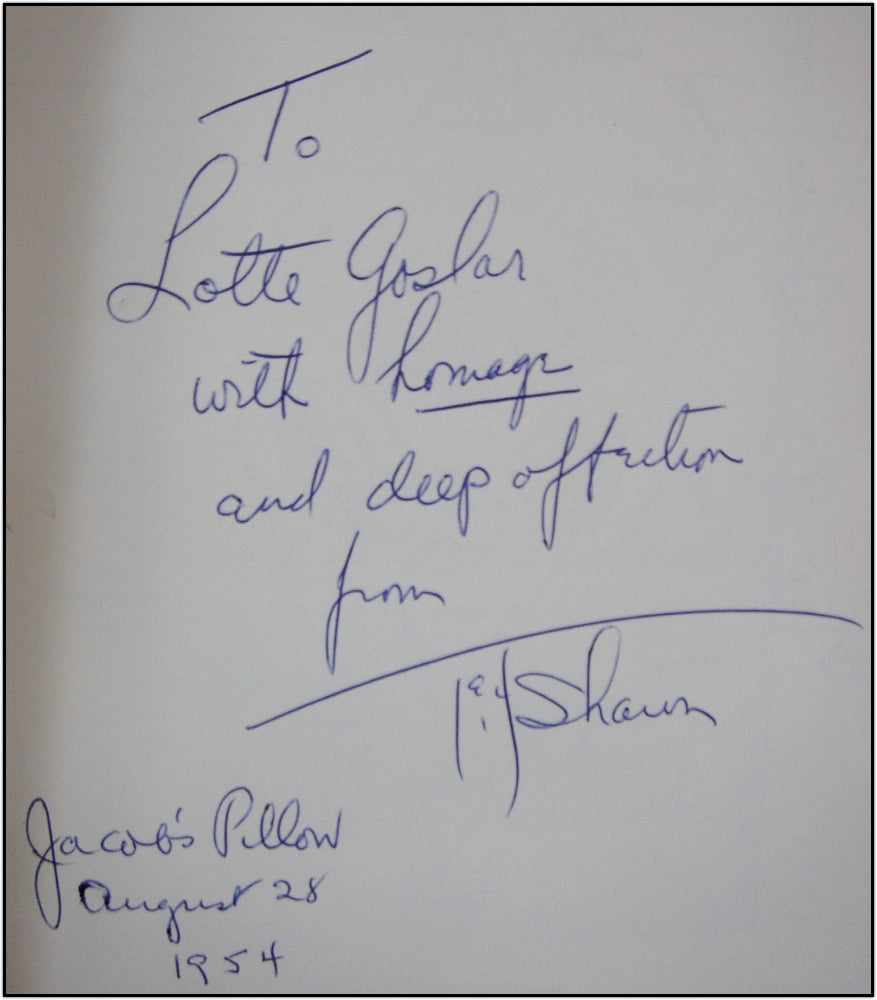 To
Lotte Goslar
with homage
and deep affection
from
Ted Shawn
Jacob's Pillow
August 28
1954